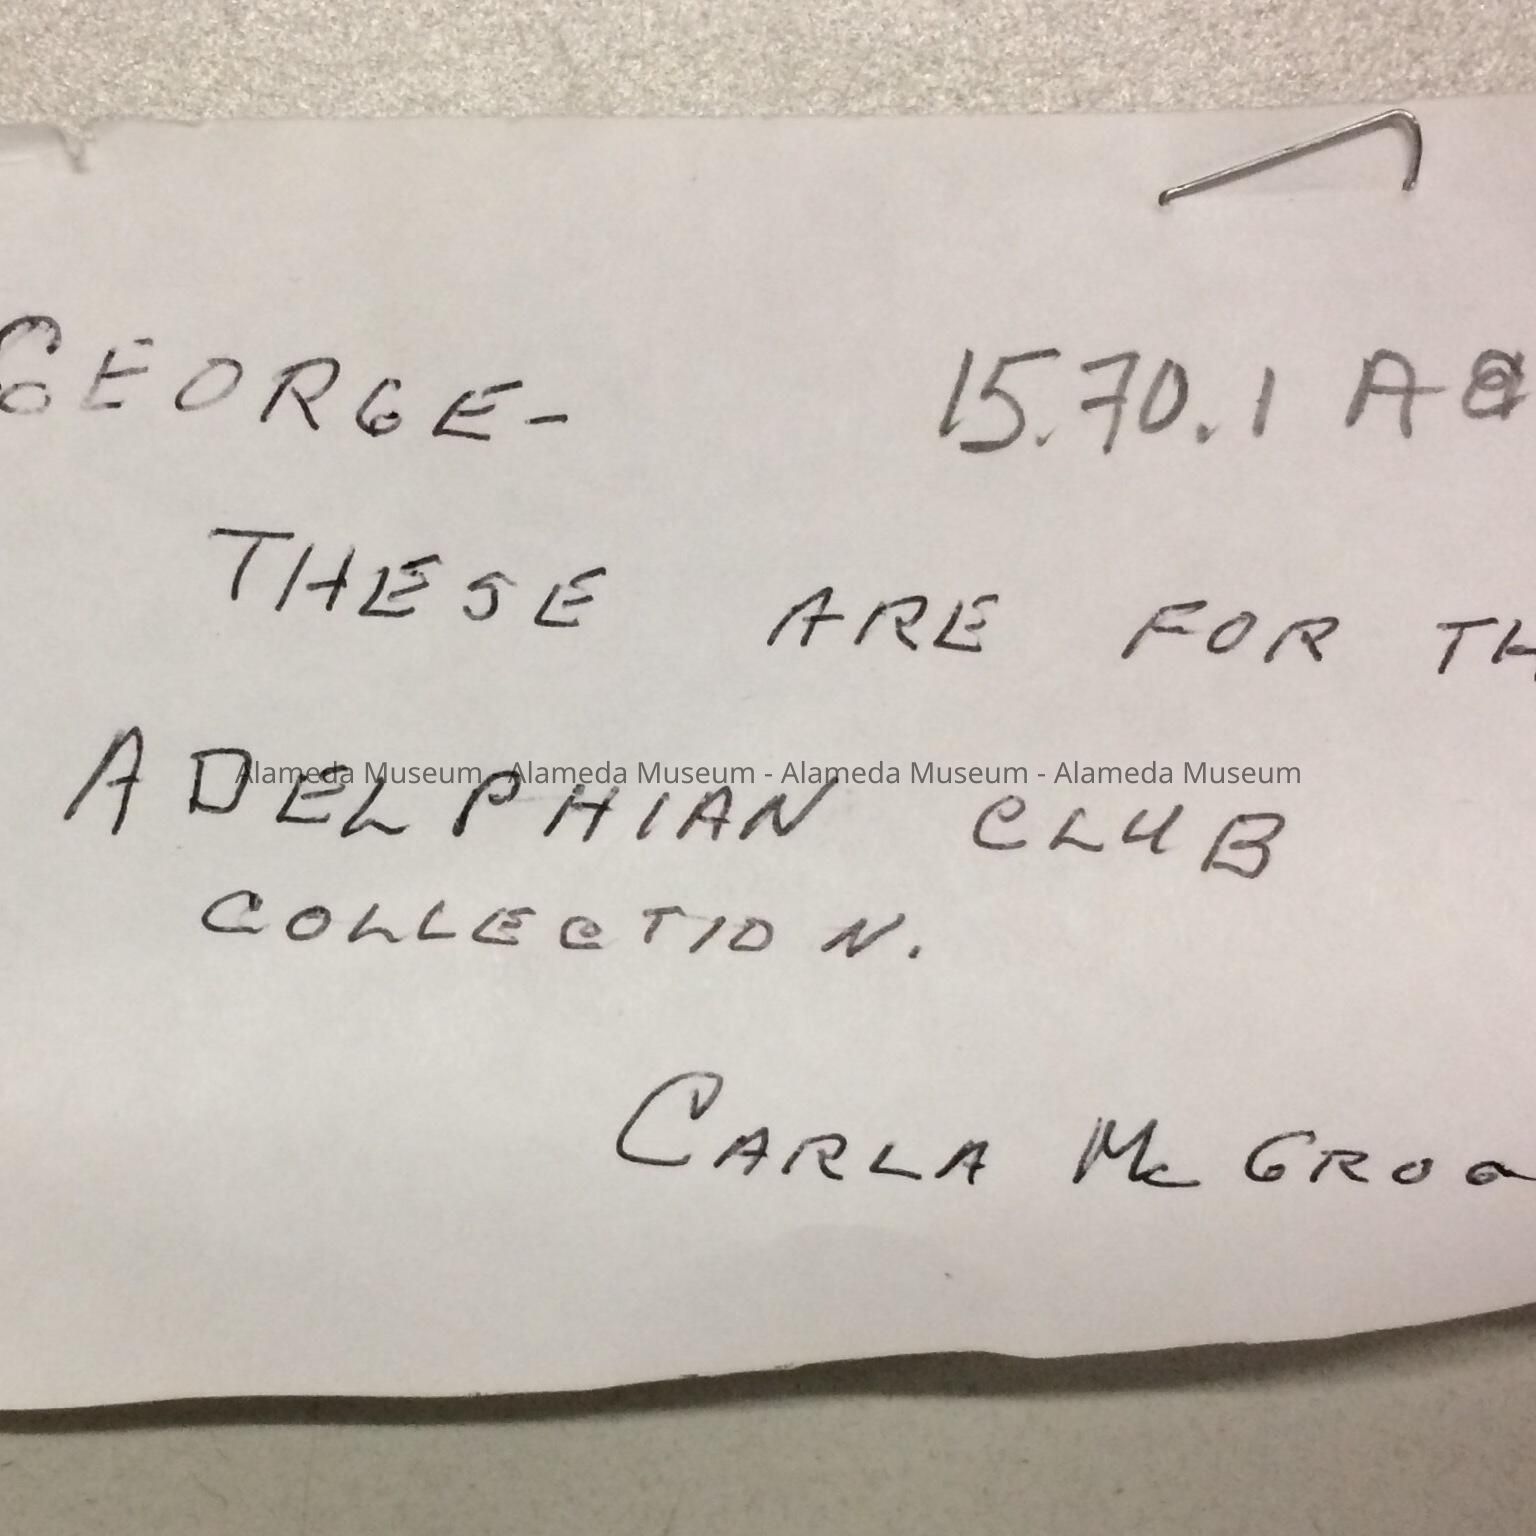 GEORGE- 15.70.1 A
THESE ARE FOR TH
ADELPHIAN CLUB
Alameda Museum - Alameda Museum - Alameda Museum - Alameda Museum
COLLECTION.
CARLA Mc GROO